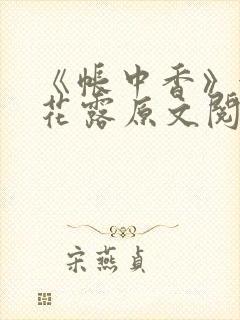 《帐中香》
花露原文阅
宋燕贞